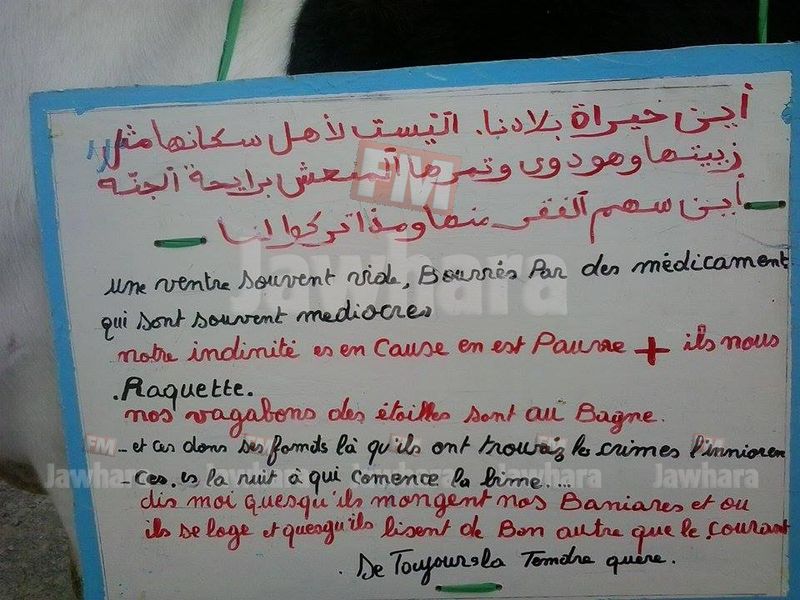 أين خيراة بلادنا. اليست لأهل سكانها مثل
زييتها وهودوى وتمرها المنعش برايحة الجنّة
أين سهم الفقر منها ومذا تركوا لنا
une ventre souvent vide, Bourrés Par des médicament
qui sont souvent mediocres
notre indinité es en Cause en est Pauvre + ils nous
.Raquette.
nos vagabons des étoilles sont au Bagne.
- et ces dans ses fomits là qu'ils ont trouvaiz les crimes l'innioren
- Ces. es la nuit à qui comence la bime....
dis moi quesqu'ils mangent nos Baniares et ou
ils se loge et quesqu'ils lisent de Bon autre que le courant
. De Toujours la Tendre guère.
FM
Jawhara
FM
Jawhara
FM
Jawhara
FM
Jawhara
FM
Jawhara
FM
Jawhara